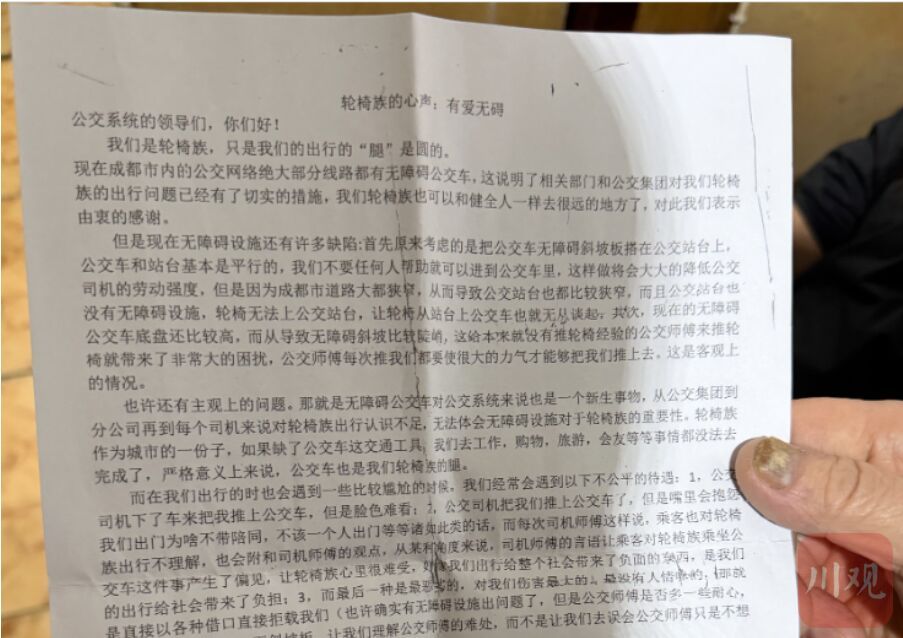 轮椅族的心声：有爱无碍
公交系统的领导们，你们好！
我们是轮椅族，只是我们的出行的“腿”是圆的。
现在成都市内的公交网络绝大部分线路都有无障碍公交车，这说明了相关部门和公交集团对我们轮椅
族的出行问题已经有了切实的措施，我们轮椅族也可以和健全人一样去很远的地方了，对此我们表示
由衷的感谢。
但是现在无障碍设施还有许多缺陷:首先原来考虑的是把公交车无障碍斜坡板搭在公交站台上，
公交车和站台基本是平行的，我们不要任何人帮助就可以进到公交车里，这样做将会大大的降低公交
司机的劳动强度，但是因为成都市道路大都狭窄，从而导致公交站台也都比较狭窄，而且公交站台也
没有无障碍设施，轮椅无法上公交站台，让轮椅从站台上公交车也就无从谈起；其次，现在的无障碍
公交车底盘还比较高，而从导致无障碍斜坡比较陡峭，这给本来就没有推轮椅经验的公交师傅来推轮
椅就带来了非常大的困扰，公交师傅每次推我们都要使很大的力气才能够把我们推上去。这是客观上
的情况。
也许还有主观上的问题。那就是无障碍公交车对公交系统来说也是一个新生事物，从公交集团到
分公司再到每个司机来说对轮椅族出行认识不足，无法体会无障碍设施对于轮椅族的重要性。轮椅族
作为城市的一份子，如果缺了公交车这交通工具，我们去工作，购物，旅游，会友等等事情都没法去
完成了，严格意义上来说，公交车也是我们轮椅族的腿。
而在我们出行的时也会遇到一些比较尴尬的时候，我们经常会遇到以下不公平的待遇：1，公交
司机下了车来把我推上公交车，但是脸色难看；2，公交司机把我们推上公交车了，但是嘴里会抱怨
我们出门为啥不带陪同，不该一个人出门等等诸如此类的话，而每次司机师傅这样说，乘客也对轮椅
族出行不理解，也会附和司机师傅的观点，从某种角度来说，司机师傅的言语让乘客对轮椅族乘坐公
交车这件事产生了偏见，让轮椅族心里很难受，好像我们出行给整个社会带来了负面的东西，是我们
的出行给社会带来了负担；3，而最后一种是最恶劣的，对我们伤害最大的，最没有人情味的，那就
是直接以各种借口直接拒载我们（也许确实有无障碍设施出问题了，但是公交师傅是否多一些耐心，
斜坡板，让我们理解公交师傅的难处，而不是让我们去误会公交师傅只是不想
川观